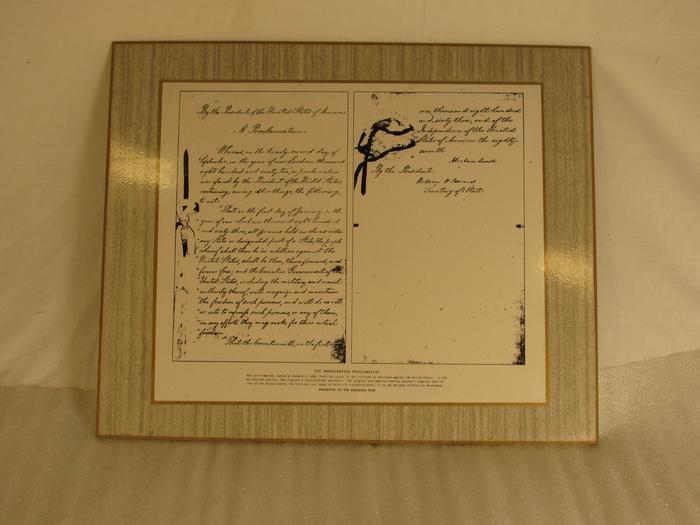 By the President of the United States of America
A Proclamation.
Whereas, on the twenty-second day of
September, in the year of our Lord one thousand
eight hundred and sixty two, a proclamation
was issued by the President of the United States,
containing, among other things, the following,
to wit:
"That on the first day of January, in the
"year of our Lord one thousand eight hundred
"and sixty-three, all persons held as slaves within
"any State or designated part of a State, the people
"whereof shall then be in rebellion against the
"United States, shall be then, thenceforward, and
"forever free; and the Executive Government of the
"United States, including the military and naval
"authority thereof, will recognize and maintain
"the freedom of such persons, and will do no act
"or acts to repress such persons, or any of them,
"in any efforts they may make for their actual
"freedom.
"That the Executive will, on the first
one thousand eight hundred
and sixty three, and of the
Independence of the United
States of America the eighty-
seventh.
Abraham Lincoln
By the President:
William H. Seward,
Secretary of State.
THE EMANCIPATION PROCLAMATION